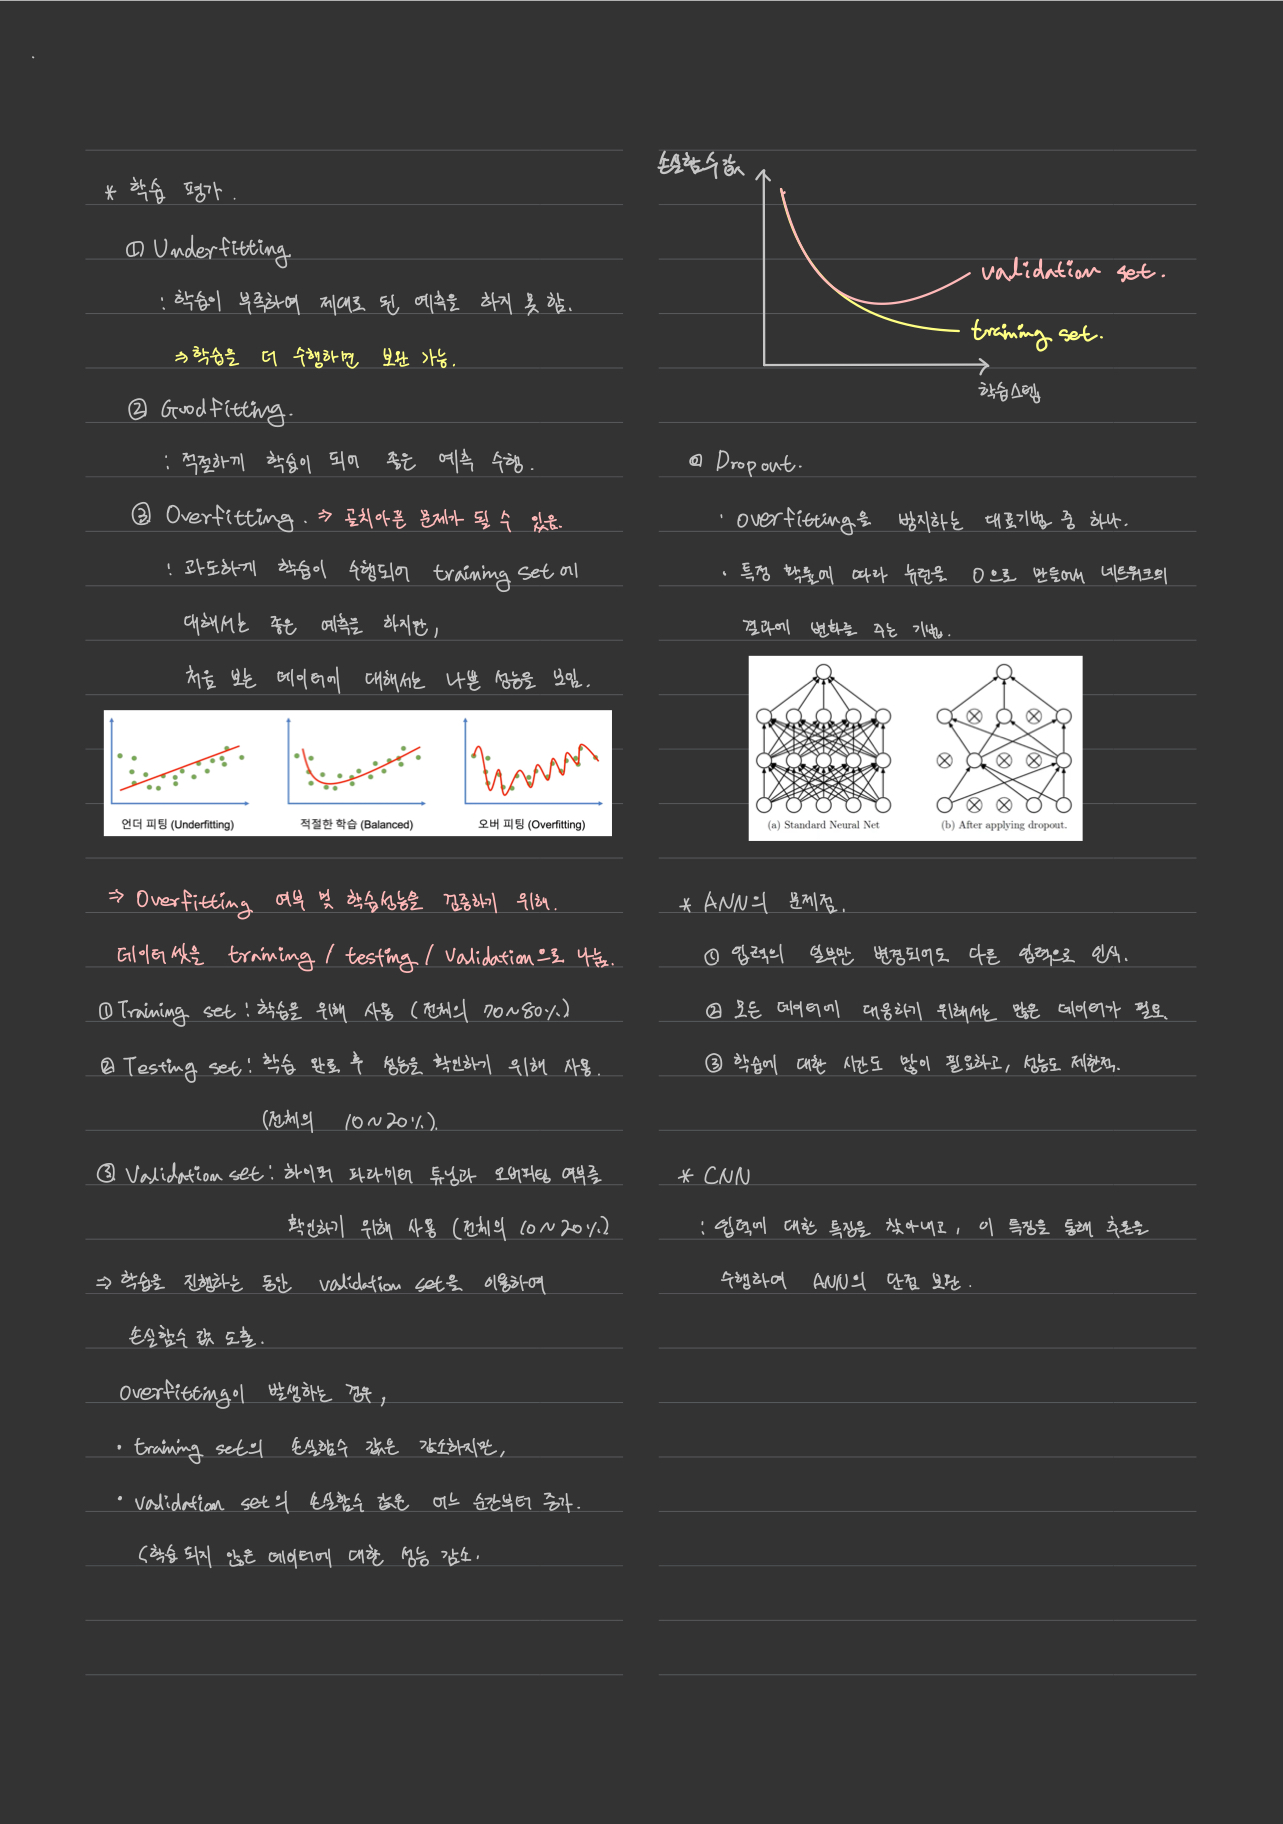 * 학습 평가.
① Underfitting
: 학습이 부족하여 제대로 된 예측을 하지 못 함.
⇒ 학습을 더 수행하면 보완 가능.
② Goodfitting.
: 적절하게 학습이 되어 좋은 예측 수행.
③ Overfitting. ⇒ 골치아픈 문제가 될 수 있음.
: 과도하게 학습이 수행되어 training set에
대해서는 좋은 예측을 하지만,
처음 보는 데이터에 대해서는 나쁜 성능을 보임.
언더 피팅 (Underfitting)
적절한 학습 (Balanced)
오버 피팅 (Overfitting)
⇒ Overfitting 여부 및 학습성능을 검증하기 위해.
데이터셋을 training / testing / Validation으로 나눔.
① Training set : 학습을 위해 사용 (전체의 70~80%)
② Testing set : 학습 완료 후 성능을 확인하기 위해 사용.
(전체의 10~20%).
③ Validation set : 하이퍼 파라미터 튜닝과 오버피팅 여부를
확인하기 위해 사용 (전체의 10~20%)
⇒ 학습을 진행하는 동안 validation set을 이용하여
손실함수 값 도출.
Overfitting이 발생하는 경우,
• training set의 손실함수 값은 감소하지만,
• Validation set의 손실함수 값은 어느 순간부터 증가.
(학습 되지 않은 데이터에 대한 성능 감소.
손실함수 값
validation set.
training set.
학습스텝
@ Dropout.
• overfitting을 방지하는 대표기법 중 하나.
• 특정 확률에 따라 뉴런을 0으로 만들어서 네트워크의
결과에 변화를 주는 기법.
(a) Standard Neural Net
(b) After applying dropout.
* ANN의 문제점.
① 입력의 일부만 변경되어도 다른 입력으로 인식.
② 모든 데이터에 대응하기 위해서는 많은 데이터가 필요.
③ 학습에 대한 시간도 많이 필요하고, 성능도 제한적.
* CNN
: 입력에 대한 특징을 찾아내고, 이 특징을 통해 추론을
수행하여 ANN의 단점 보완.